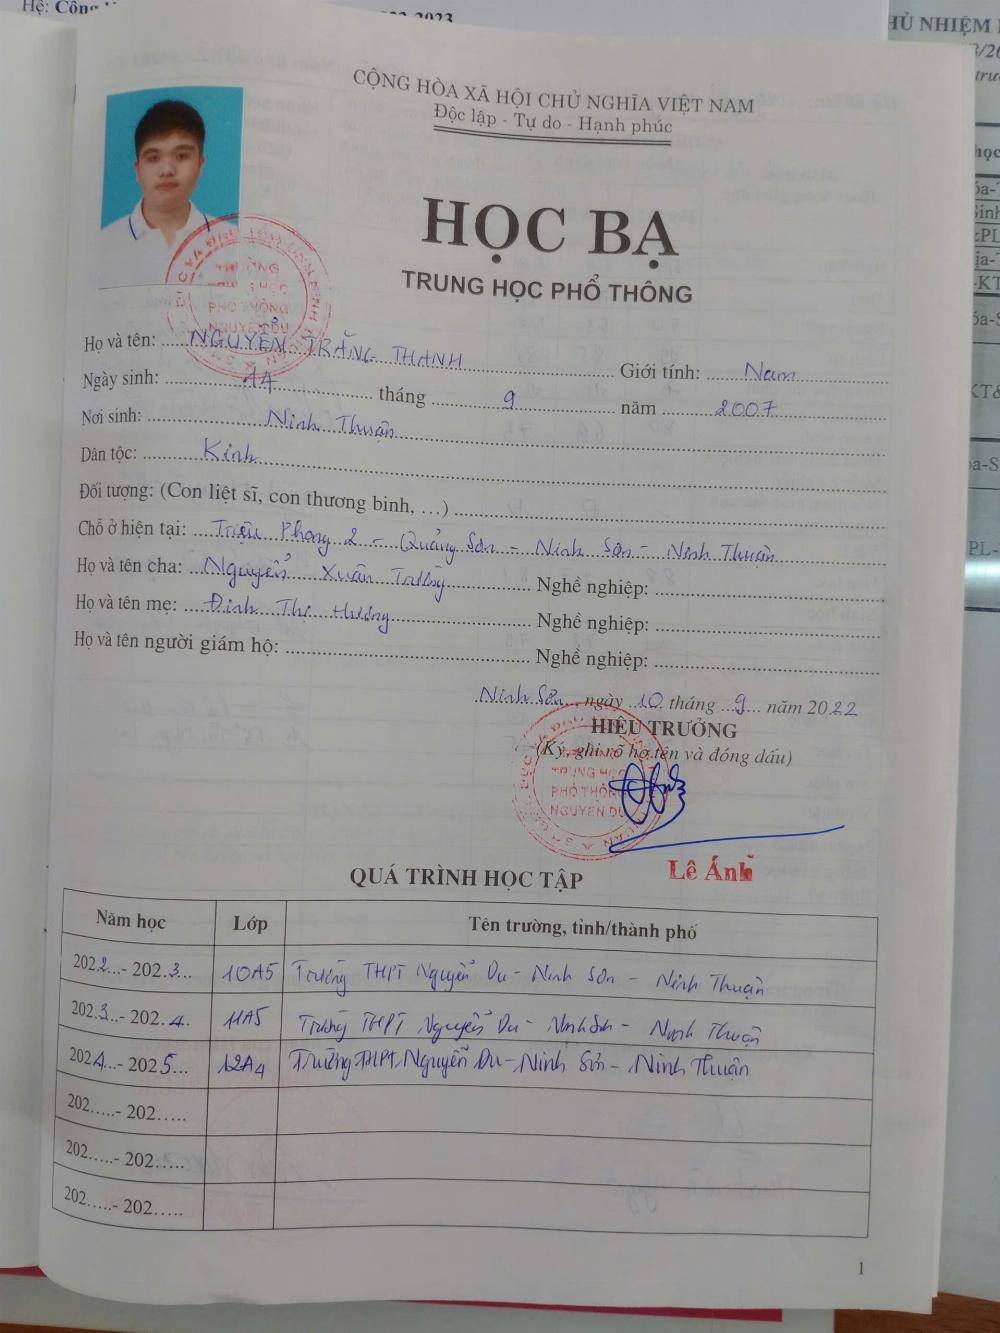 Hệ: Công
2022-2023
HỦ NHIỆM
CỘNG HÒA XÃ HỘI CHỦ NGHĨA VIỆT NAM
Độc lập - Tự do - Hạnh phúc
HỌC BẠ
TRUNG HỌC PHỔ THÔNG
TRƯỜNG
TRUNG HỌC
PHỔ THÔNG
NGUYỄN DU
Họ và tên: NGUYỄN TRĂNG THANH Giới tính: Nam
Ngày sinh: 14 tháng 9 năm 2007
Nơi sinh: Ninh Thuận
Dân tộc: Kinh
Đối tượng: (Con liệt sĩ, con thương binh, …)
Chỗ ở hiện tại: Triệu Phong 2 - Quảng Sơn - Ninh Sơn - Ninh Thuận
Họ và tên cha: Nguyễn Xuân Trường Nghề nghiệp:
Họ và tên mẹ: Đinh Thị Hương Nghề nghiệp:
Họ và tên người giám hộ: Nghề nghiệp:
Ninh Sơn, ngày 10 tháng 9 năm 2022
HIỆU TRƯỞNG
(Ký, ghi rõ họ tên và đóng dấu)
TRƯỜNG
TRUNG HỌC
PHỔ THÔNG
NGUYỄN DU
Lê Ánh
QUÁ TRÌNH HỌC TẬP
Năm học Lớp Tên trường, tỉnh/thành phố
2022 - 2023 10A5 Trường THPT Nguyễn Du - Ninh Sơn - Ninh Thuận
2023 - 2024 11A5 Trường THPT Nguyễn Du - Ninh Sơn - Ninh Thuận
2024 - 2025 12A4 Trường THPT Nguyễn Du - Ninh Sơn - Ninh Thuận
202..... - 202.....
202..... - 202.....
202..... - 202.....
1